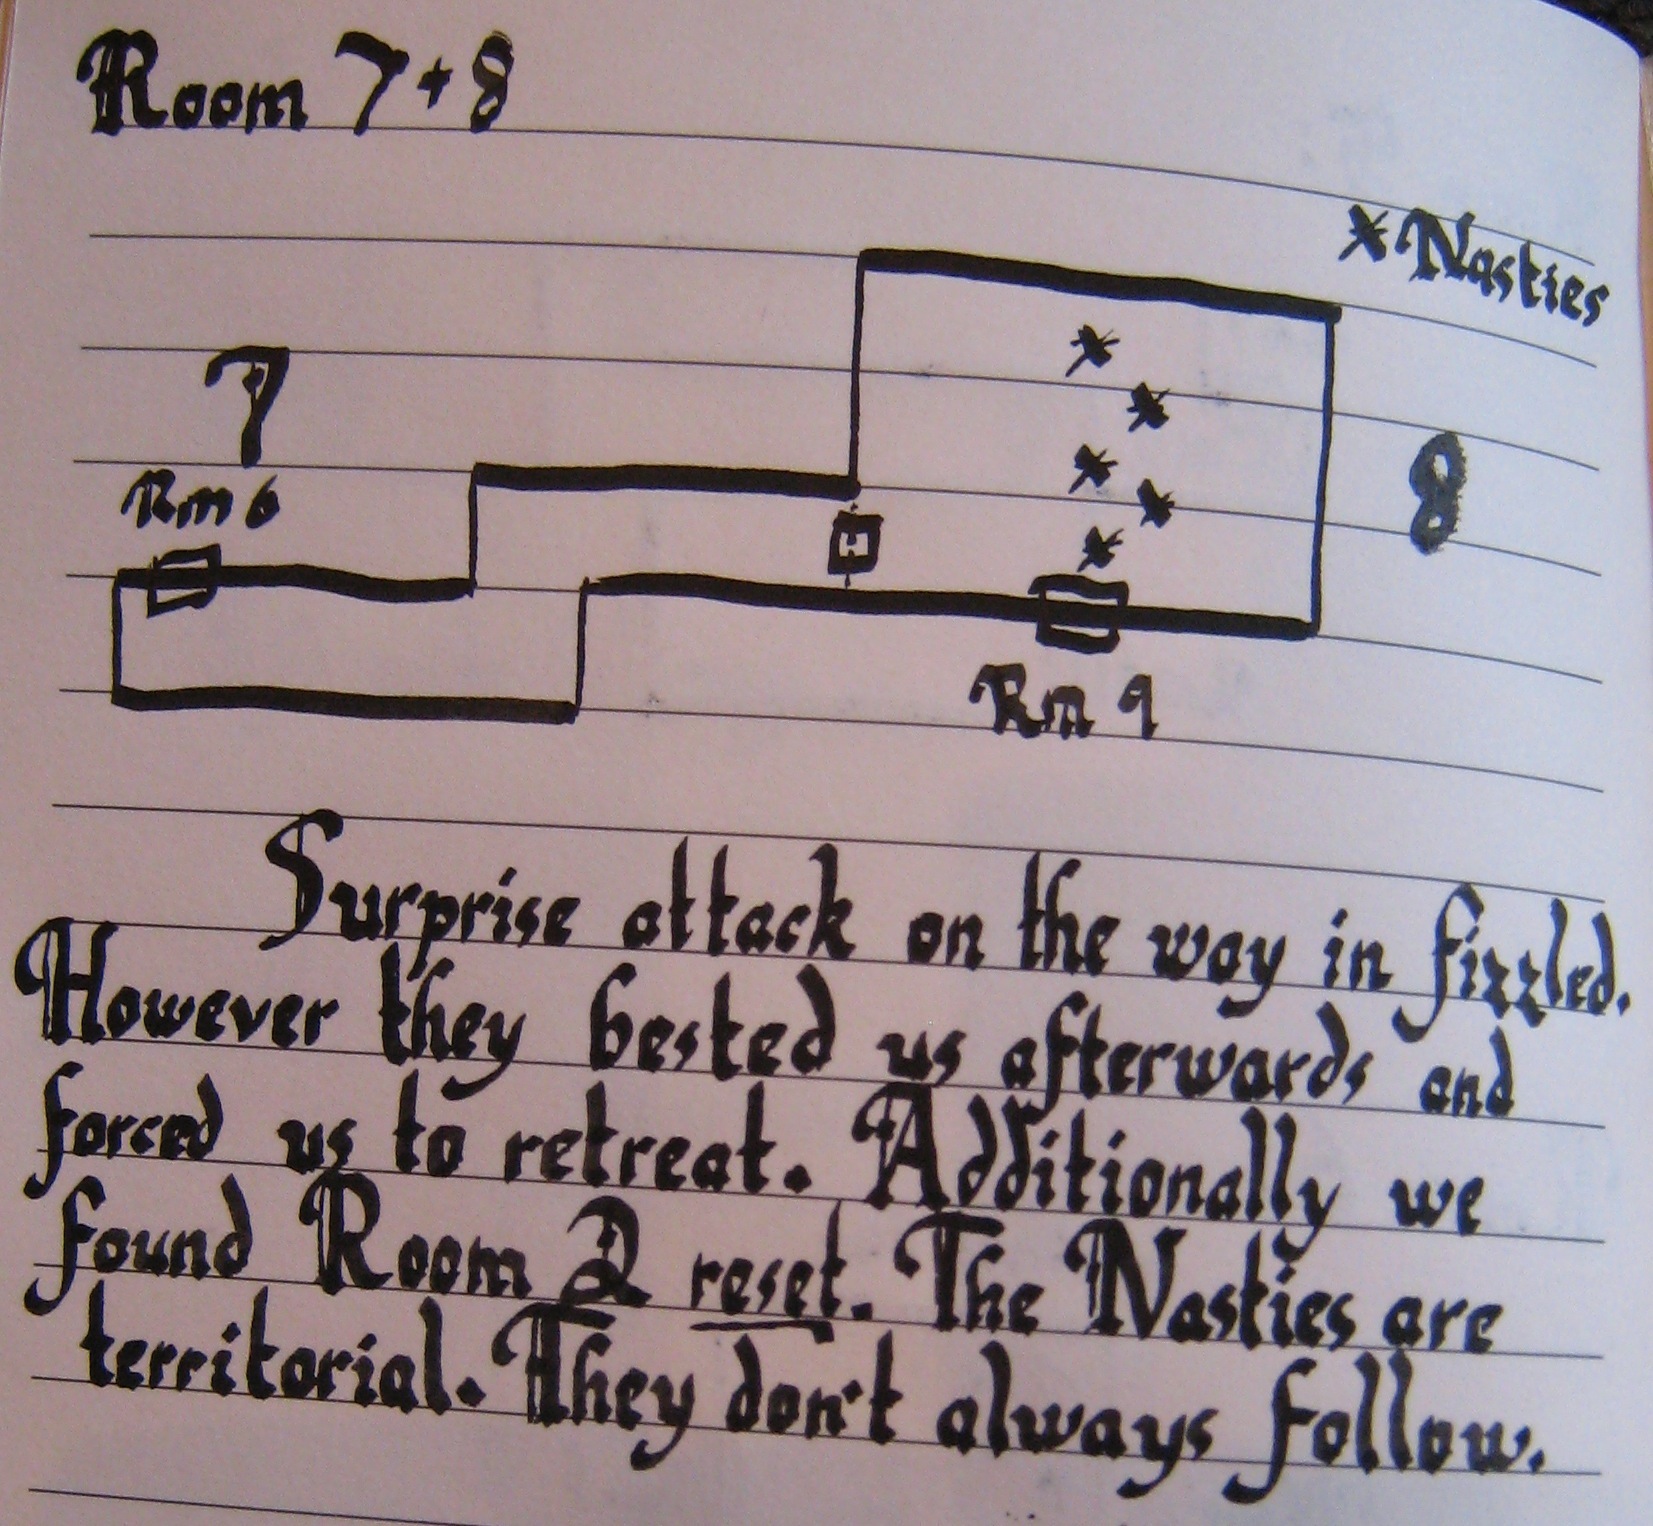 Room 7 + 8
x Nasties
7
Rm 6
8
Rm 9
Surprise attack on the way in fizzled.
However they bested us afterwards and
forced us to retreat. Additionally we
found Room 2 reset. The Nasties are
territorial. They don't always follow.